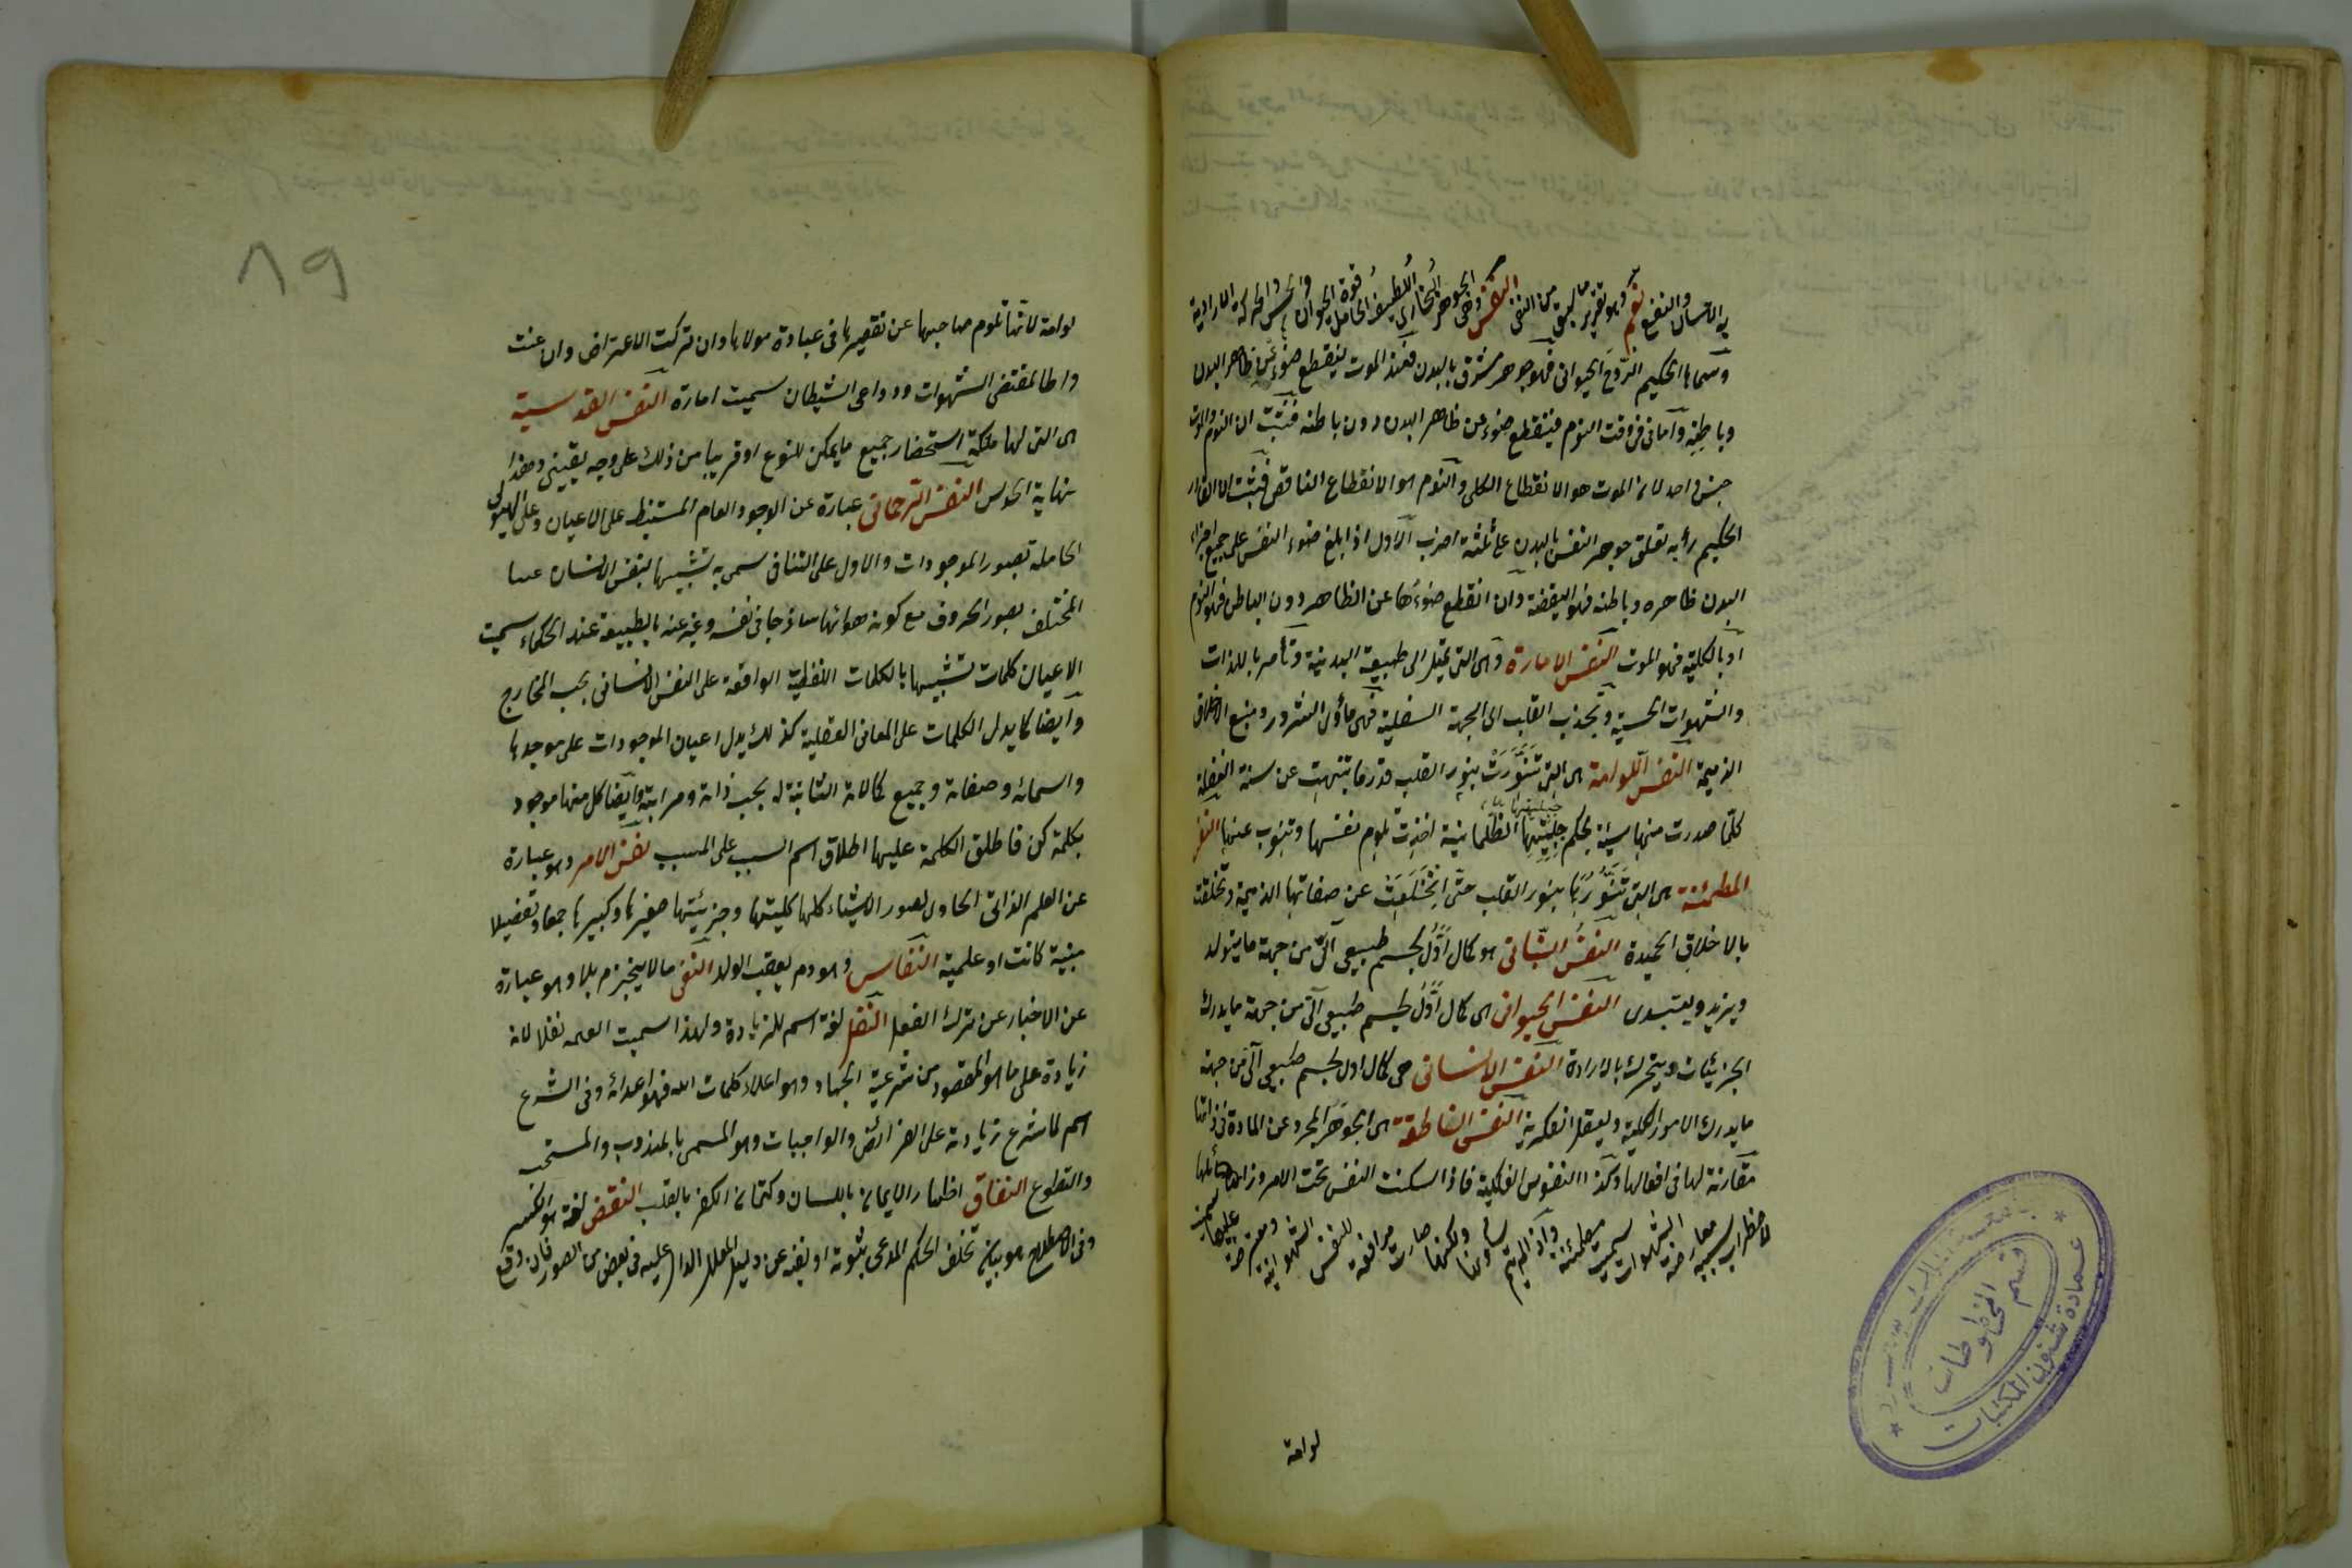 به الانسان والنفع نعم وهو تقرير ما سبق من النفى النفس وهى الجوهر البخارى اللطيف الحامل قوة الحيوان والحس والحركة الارادية
وسماها الحكيم الروح الحيوانى فهو جوهر مشرق بالبدن فعند الموت ينقطع ضوئه عن ظاهر البدن
وباطنه واما فى وقت النوم فينقطع ضوئه عن ظاهر البدن دون باطنه فثبت ان النوم والموت
جنس واحد لان الموت هو الانقطاع الكلى والنوم هو الانقطاع الناقص فثبت ان القادر
الحكيم رأيه تعلق جوهر النفس بالبدن على ثلثة اضرب الاول اذا بلغ ضوء النفس على جميع اجزاء
البدن ظاهره وباطنه فهو اليقظة وان انقطع ضوءها عن الظاهر دون الباطن فهو النوم
او بالكلية فهو الموت النفس الامارة وهى التى تميل الى طبيعة البدنية وتأمر باللذات
والشهوات الحسية وتجذب القلب الى الجهة السفلية فهى مأوى الشرور ومنبع الاخلاق
الذميمة النفس اللوامة هى التى تنورت بنور القلب قدر ما تنبهت عن سنة الغفلة
كلما صدرت منها سيئة بحكم جبلتها الظلمانية اخذت تلوم نفسها وتتوب عنها النفس
المطمئنة هى التى تنورها بنور القلب حتى انخلعت عن صفاتها الذميمة وتخلقت
بالاخلاق الحميدة النفس النباتى هو كمال اول لجسم طبيعى الى من جهة ما يتولد
ويزيد ويغتذى النفس الحيوانى هى كمال اول لجسم طبيعى الى من جهة ما يدرك
الجزئيات ويتحرك بالارادة النفس الانسانى هى كمال اول لجسم طبيعى الى من جهة
ما يدرك الامور الكلية ويفعل الفكرية النفس الناطقة هى الجوهر المجرد عن المادة فى ذاتها
مقارنة لها فى افعالها وكذا النفوس الفلكية فاذا سكنت النفس تحت الامر وزايلها
الاضطراب بسبب معارضة الشهوات سميت مطمئنة واذا لم يتم سكونها ولكنها صارت موافقة للنفس الشهوانية ومعترضة عليها سميت
لوامة
٨٩
لوامة لانها تلوم صاحبها عن تقصيرها فى عبادة مولاها وان تركت الاعتراض واذعنت
واطا لمقتضى الشهوات ودواعى الشيطان سميت امارة النفس القدسية
هى التى لها ملكة استحضار جميع ما يمكن للنوع او قريبا من ذلك على وجه يقينى وهذا
نهاية الحدس النفس الرحمانى عبارة عن الوجود العام المنبسط على الاعيان وعلى الهيولى
الحاملة بصور الموجودات والاول على الثانى سمى به تشبيها بنفس الانسان
المختلف بصور الحروف مع كونه هوائها ساذجا فى نفسه وعبر عنه بالطبيعة عند الحكماء سميت
الاعيان كلمات تشبيها بالكلمات اللفظية الواقعة على النفس الانسانى بحسب المخارج
وايضا كما يدل الكلمات على المعانى العقلية كذلك يدل اعيان الموجودات على موجدها
واسمائه وصفاته وجميع كمالاته الثابتة له بحسب ذاته ومراتبه وايضا كل منها موجود
بكلمة كن فاطلق الكلمة عليها اطلاق اسم السبب على المسبب نفس الامر وهو عبارة
عن العلم الذاتى الحاوى لصور الاشياء كلها كليتها وجزئيتها صغيرها وكبيرها جمعا وتفصيلا
عينية كانت او علمية النفاس وهو دم يعقب الولد النفى ما لا ينجزم بلا وهو عبارة
عن الاخبار عن ترك الفعل النفل لغة اسم للزيادة ولهذا سميت الغنيمة نفلا لانه
زيادة على ما هو المقصود من شرعية الجهاد وهو اعلاء كلمات الله فهو اعدائه وفى الشرع
اسم لما شرع زيادة على الفرائض والواجبات وهو المسمى بالمندوب والمستحب
والتطوع النفاق اظهار الايمان باللسان وكتمان الكفر بالقلب النقض لغة هو الكسر
وفى الاصطلاح هو بيان تخلف الحكم المدعى ثبوته او نفيه عن دليل المعلل الدال عليه فى بعض من الصور فان وقع
عمادة شئون المكتبات
قسم المخطوطات